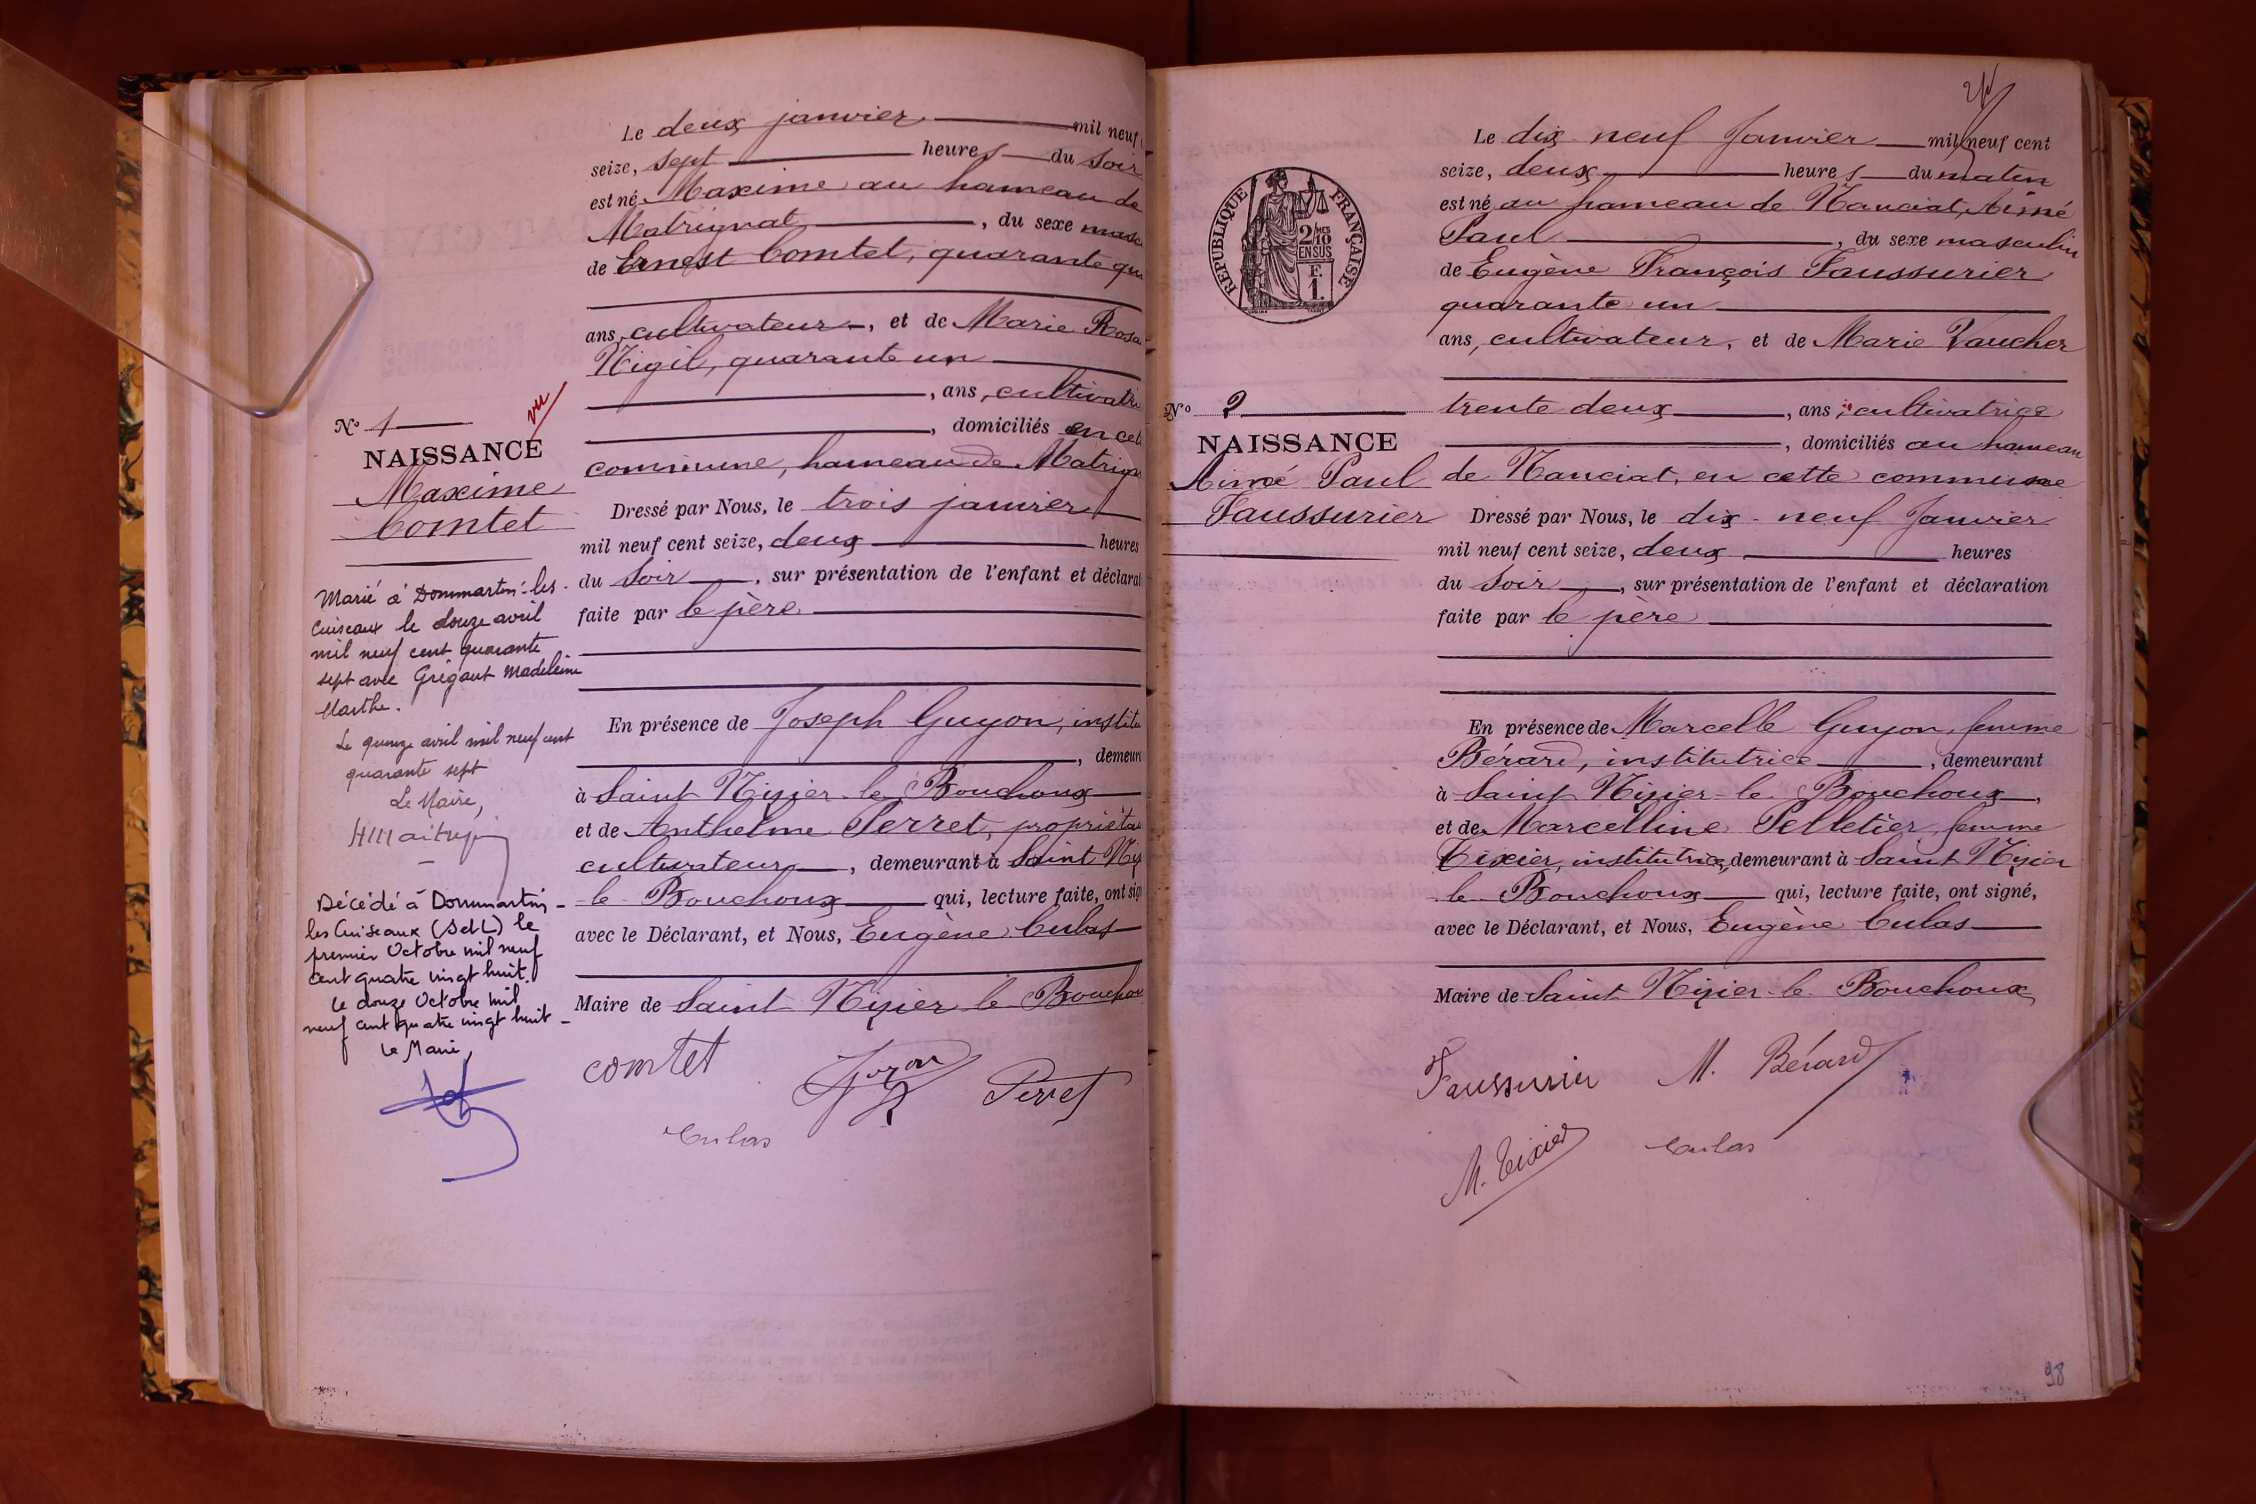 Le deux janvier mil neuf
seize, sept heures du soir
est né Maxime au hameau de
Matrignat, du sexe masc
de Ernest Comtet, quarante qu
ans, cultivateur, et de Marie Rosa
Nigil, quarante un
, ans, cultivatri
, domiciliés en cet
commune, hameau de Matrign
Dressé par Nous, le trois janvier
mil neuf cent seize, deux heures
du soir, sur présentation de l'enfant et déclarat
faite par le père
En présence de Joseph Guyon, institu
, demeur
à Saint Nizier-le-Bouchoux
et de Anthelme Perret, propriéta
cultivateur, demeurant à Saint Niz
le-Bouchoux qui, lecture faite, ont sig
avec le Déclarant, et Nous, Eugène Culas
Maire de Saint-Nizier-le-Bouchou
comtet Guyon Perret
Culas
N° 1
vu
NAISSANCE
Maxime
Comtet
Marié à Dommartin-les-
Cuiseaux le douze avril
mil neuf cent quarante
sept avec Grigaut Madeleine
Marthe.
Le quinze avril mil neuf cent
quarante sept
Le Maire,
Décédé à Dommartin-
les Cuiseaux (SdL) le
premier Octobre mil neuf
cent quatre vingt huit.
Le douze Octobre mil
neuf cent quatre vingt huit-
Le Maire
RÉPUBLIQUE FRANÇAISE
2/10
EN SUS
F.
1.
N° 2
NAISSANCE
Aimé Paul
Faussurier
Le dix-neuf Janvier mil neuf cent
seize, deux heures du matin
est né au hameau de Nanciat, Aimé
Paul, du sexe masculin
de Eugène François Faussurier
quarante un
ans, cultivateur, et de Marie Vaucher
trente deux, ans, cultivatrice
, domiciliés au hameau
de Nanciat, en cette commune
Dressé par Nous, le dix-neuf Janvier
mil neuf cent seize, deux heures
du soir, sur présentation de l'enfant et déclaration
faite par le père
En présence de Marcelle Guyon, femme
Bérard, institutrice, demeurant
à Saint Nizier-le-Bouchoux,
et de Marcelline Pelletier, femme
Tixier, institutrice, demeurant à Saint Nizier
le-Bouchoux qui, lecture faite, ont signé,
avec le Déclarant, et Nous, Eugène Culas
Maire de Saint Nizier-le-Bouchoux
Faussurier M. Bérard
M. Tixier Culas
98